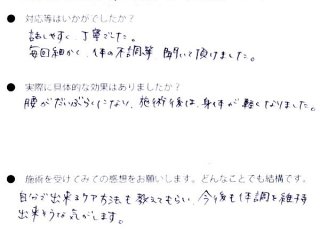 ● 対応等はいかがでしたか？
話しやすく、丁寧でした。
毎回細かく、体の不調等 聞いて頂けました。
● 実際に具体的な効果はありましたか？
腰がだいぶらくになり、施術後は、身体が軽くなりました。
● 施術を受けてみての感想をお願いします。どんなことでも結構です。
自分で出来るケア方法も教えてもらい、今後も体調を維持
出来そうな気がします。